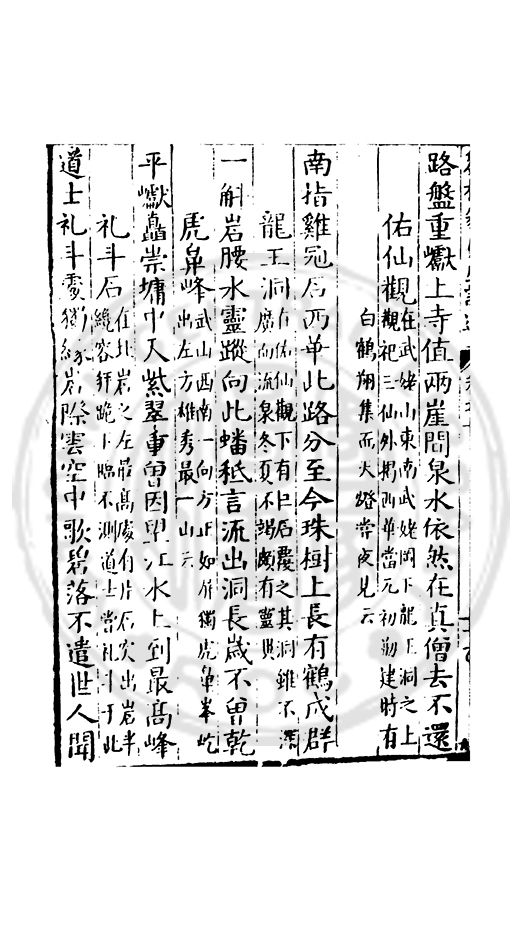 路盤重巘上寺值兩崖間泉水依然在真僧去不還
佑仙觀在武姥山東南武姥岡下龍王洞之上
觀祀三仙外揭西華當元初剏建時有
白鶴翔集而天燈嘗夜見云
南指雞冠石西華此路分至今珠樹上長有鶴成群
龍王洞在佑仙觀下有巨石覆之其洞雖不濶
廣而流泉冬夏不竭頗有靈異
一斛岩腰水靈蹤向此蟠秪言流出洞長歲不曾乾
虎鼻峰武山西南一向方正如屏獨虎鼻峯屹
出左方雄秀最一山云
平巘矗崇墉中天紫翠重曾因望江水上到最高峰
礼斗石在北岩之左最高處有片石突出岩半
纔容拜跪下臨不測道士嘗礼斗于此
道士礼斗處猶緣岩際雲空中歌碧落不遣世人聞